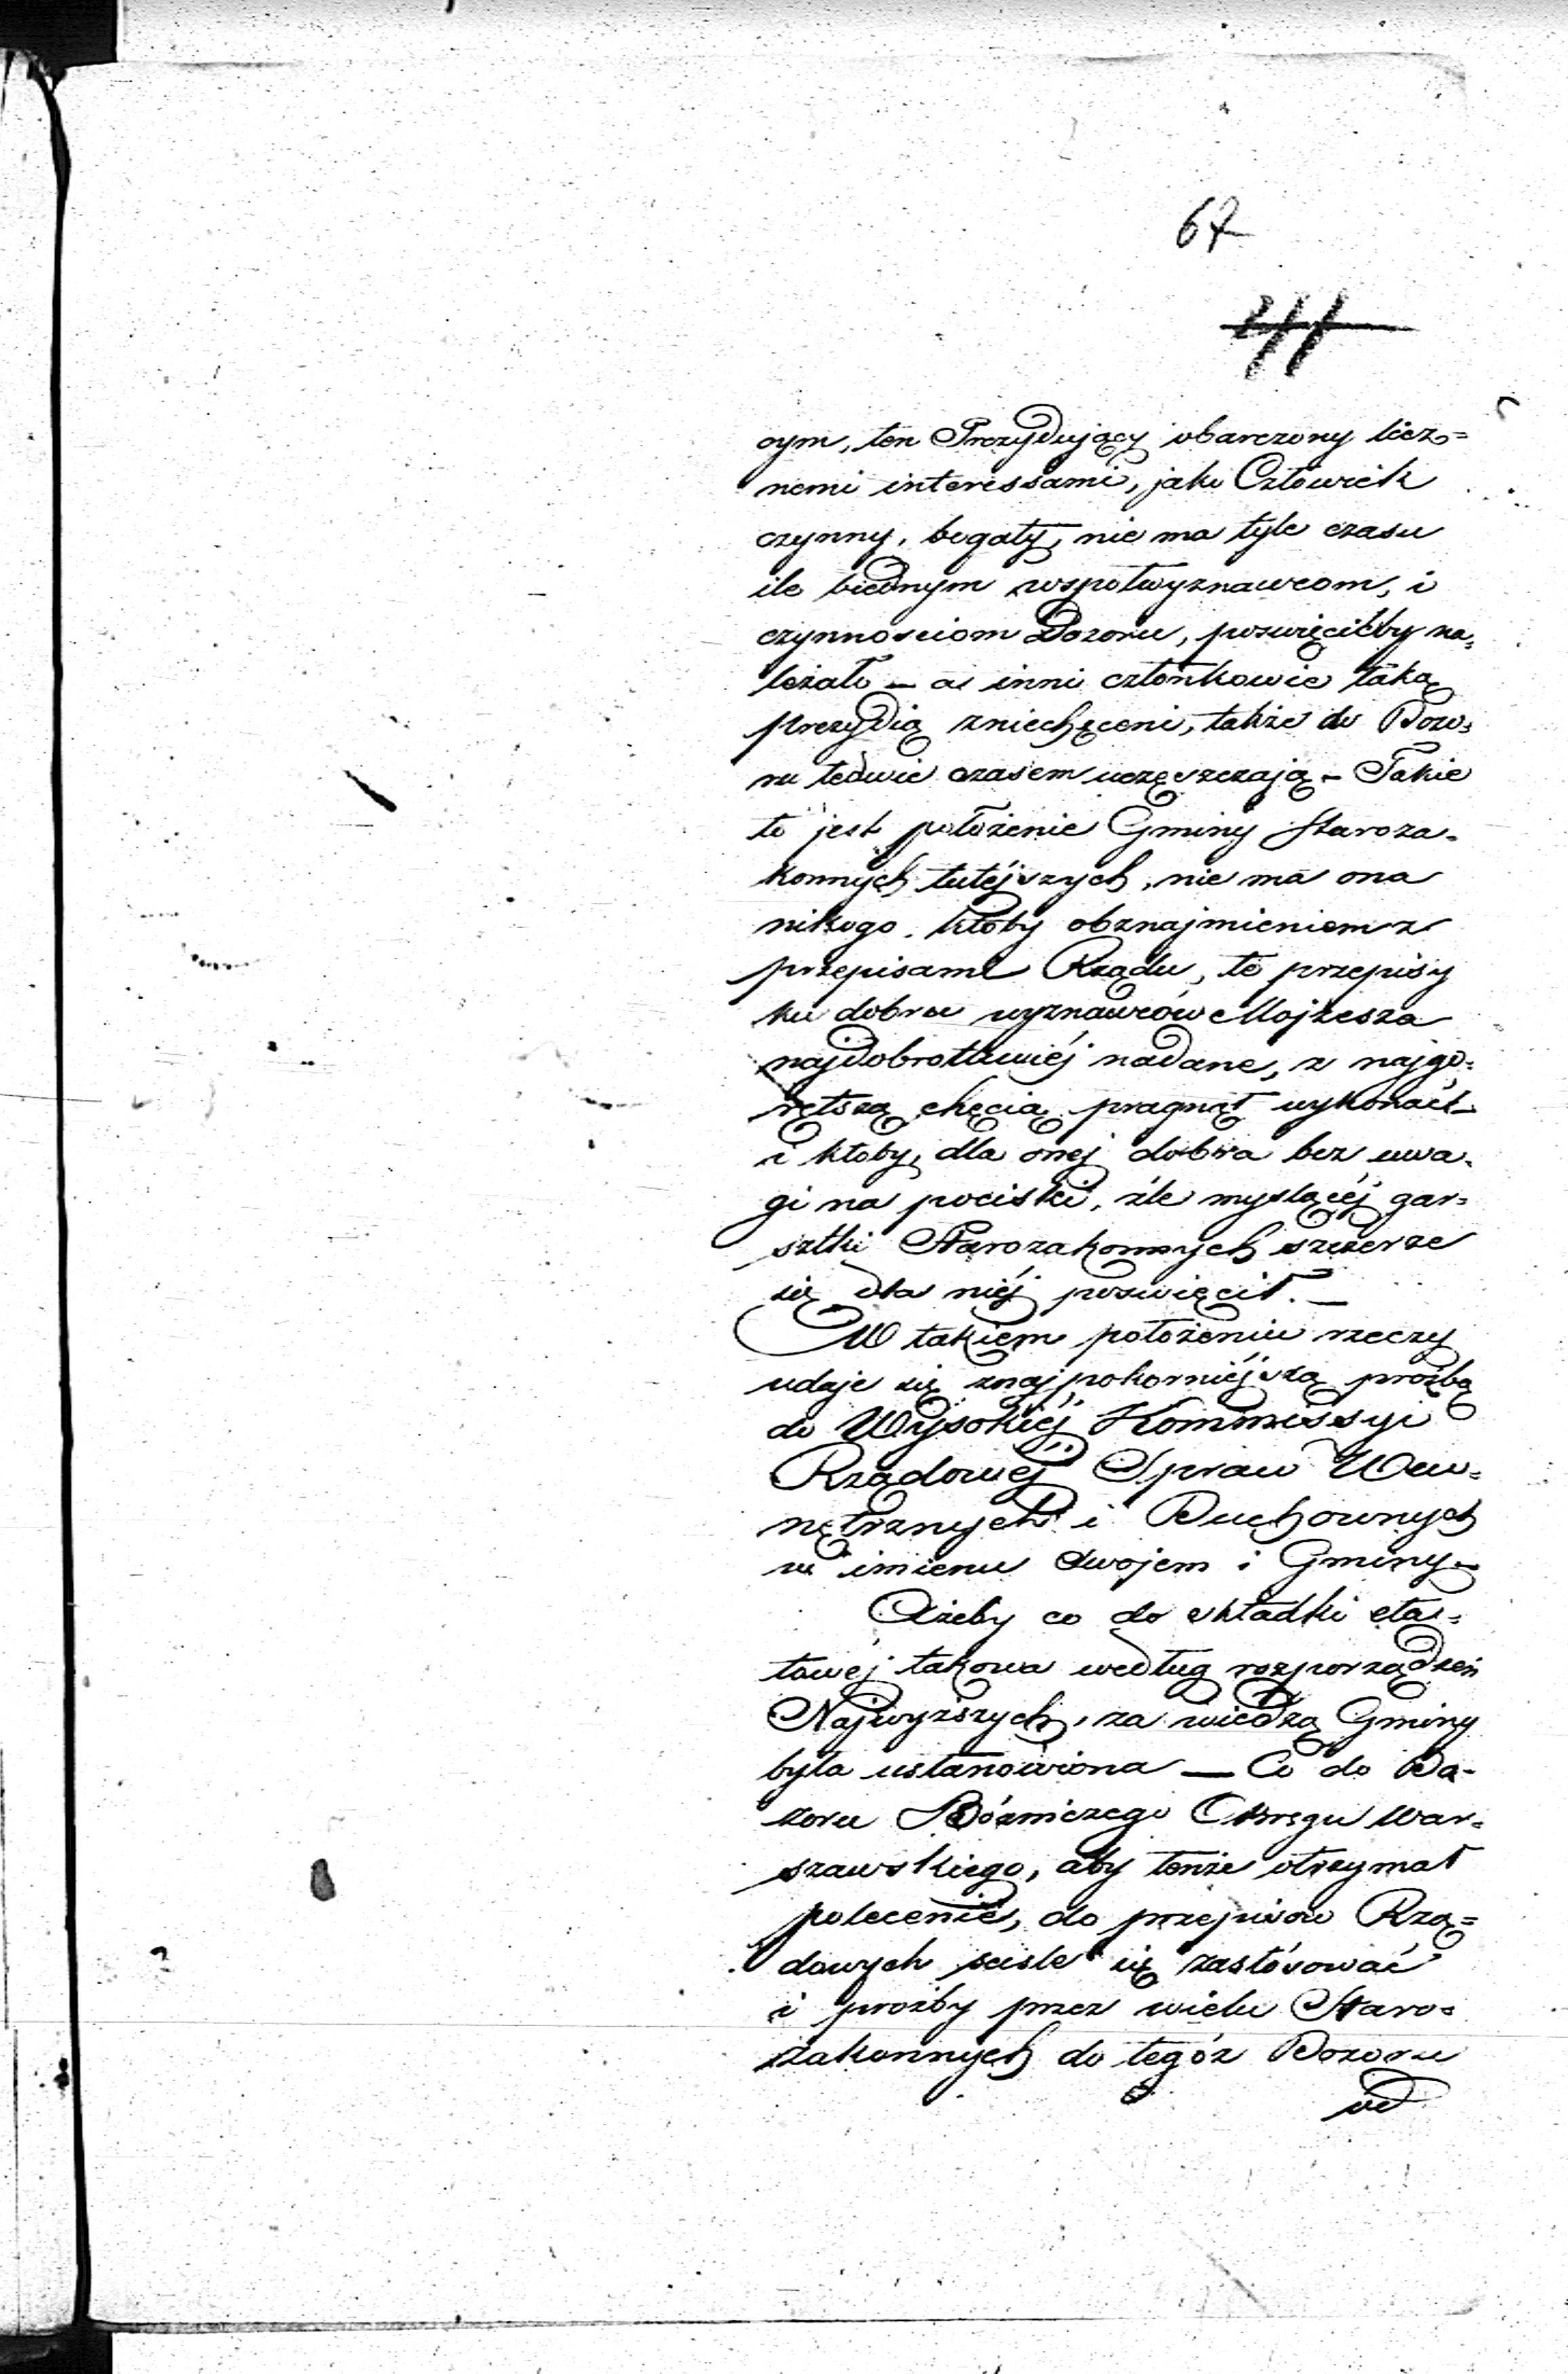 67
211
cym, ten Prezydujący obarczony licz=
nemi interessami, jako Człowiek
czynny, bogaty, nie ma tyle czasu
ile biednym wspołwyznawcom, i
czynnosciom Dozoru, poswięcićby na=
leżało — a inni członkowie taką
prezydią zniechęceni, także do Dozo=
ru ledwie czasem uczęszczają — Takie
to jest położenie Gminy Staroza=
konnych tutéjszych, nie ma ona
nikogo, ktoby obznajmieniem z
przepisami Rządu, te przepisy
ku dobru wyznawców Mojżesza
najdobrotliwiéj nadane, z najgo=
rętszą chęcią pragnął wykonać
i ktoby, dla onej dobra bez uwa=
gi na pociski, źle myslącéj gar=
sztki Starozakonnych szczerze
się dla niéj poswięcił. —
W takiem położeniu rzeczy
udaje się z najpokorniéjszą prożbą
do Wysokiéj Kommissyi
Rządowéj Spraw Wew=
nętrznych i Duchownych
w imieniu swojem i Gminy—
Ażeby co do składki eta=
towéj takowa według rozporządzeń
Najwyższych, za wiedzą Gminy
była ustanowiona — Co do Do=
zoru Bóżniczego Okręgu War=
szawskiego, aby tenże otrzymał
polecenie, do przepisów Rzą=
dowych scisle się zastósować
i prozby przez wielu Staro=
zakonnych do tegóż Dozoru
od